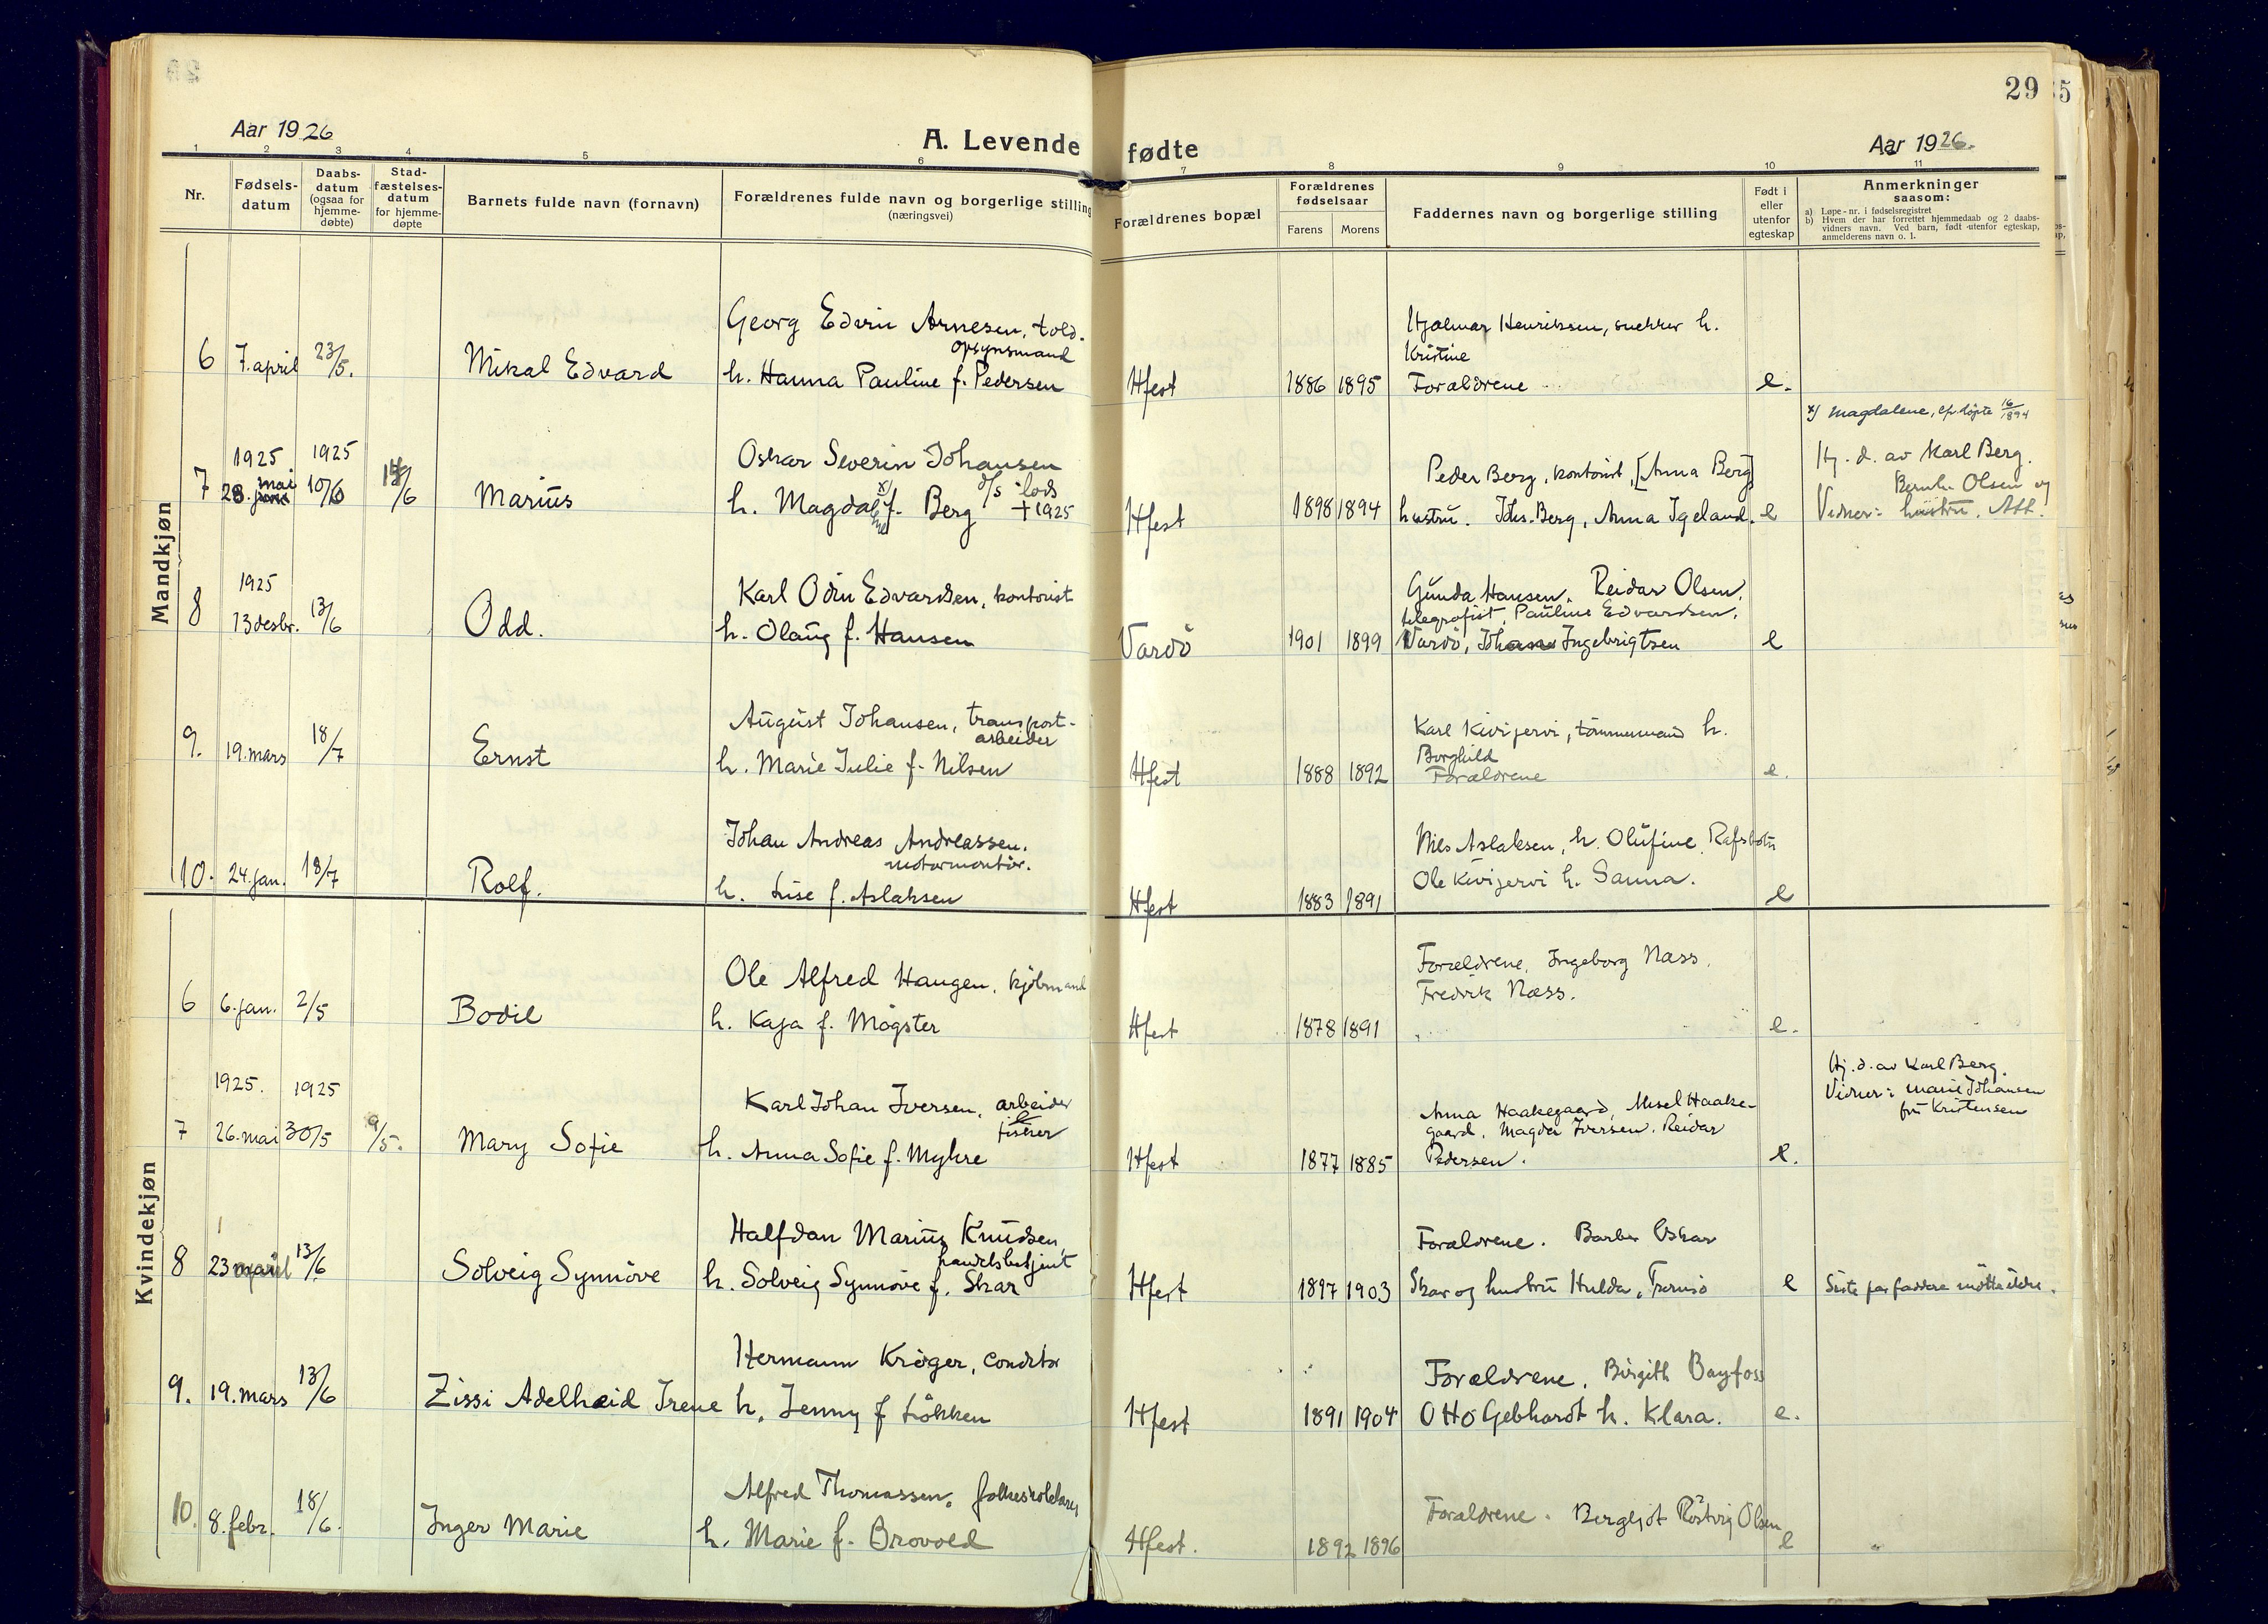 29
Aar 1926
A. Levende fødte
Aar 1926.
1 2 3 4 5 6 7 8 9 10 11
Nr.
Fødsels-
datum
Daabs-
datum
(ogsaa for
hjemme-
døbte)
Stad-
fæstelses-
datum
for hjemme-
døpte
Barnets fulde navn (fornavn)
Forældrenes fulde navn og borgerlige stilling
(næringsvei)
Forældrenes bopæl
Forældrenes
fødselsaar
Farens Morens
Faddernes navn og borgerlige stilling
Født i
eller
utenfor
egteskap
Anmerkninger
saasom:
a) Løpe-nr. i fødselsregistret
b) Hvem der har forrettet hjemmedaab og 2 daabs-
vidners navn. Ved barn, født utenfor egteskap,
anmelderens navn o. l.
Mandkjøn
Georg Edvin Arnesen, told-
opsynsmand
6 7. april 23/5. Mikal Edvard h. Hanna Pauline f. Pedersen Hfest 1886 1895
Hjalmar Henrikssen, snekker h.
Kristine
Forældrene e.
x) Magdalene, 16/1894
1925 1925
Oskar Severin Johansen
d/s lods
7 28. mai 10/6 /6 Marius h. Magdalene x) f. Berg + 1925 Hfest 1898 1894
Peder Berg, kontorist, [Anna Berg]
hustru. Johs. Berg, Anna Igeland. e
Hj. d. av Karl Berg.
Bernh. Olsen og
Vidner: hustru.
1925
Karl Odin Edvardsen, kontorist
8 13 desbr. 13/6 Odd. h. Olaug f. Hansen Vardö 1901 1899
Gunda Hansen. Reidar Olsen,
telegrafist, Pauline Edvardsen,
Vardö, Ingebrigtsen e
August Johansen, transport-
arbeider
9. 19. mars 18/7 Ernst h. Marie Julie f. Nilsen Hfest 1888 1892
Karl Kivijervi, tömmermand h.
Borghild
Forældrene e.
Johan Andreas Andreassen.
motormontör.
10. 24. jan. 18/7 Rolf. h. Lise f. Aslaksen Hfest 1883 1891
Nils Aslaksen, h. Olufine, Rafsbotn
Ole Kivijervi h. Sanna. e
Kvindekjøn
Ole Alfred Haugen, kjöbmand
6 6. jan. 2/5 Bodil h. Kaja f. Mögster Hfest 1878 1891
Forældrene, Ingeborg Næss,
Fredrik Næss. e.
1925. 1925
Karl Johan Iversen, arbeider
fisker
7 26. mai 30/5 9/5. Mary Sofie h. Anna Sofie f. Myhre Hfest 1877 1885
Anna Haakegaard, Haake-
gaard, Magda Iversen. Reidar
Pedersen. e.
Hj. d. av Karl Berg.
Vidner: Marie Johansen
fru Kristensen
Halfdan Marius Knudsen,
handelsbetjent
8 23 13/6 Solveig Synnöve h. Solveig Synnöve f. Skar Hfest 1897 1903
Forældrene. Barber Oskar
Skar og hustru Hulda, Tromsö e
Siste par faddere mötte ikke.
Hermann Kröger, conditor
9. 19. mars 13/6 Zissi Adelheid Irene h. Jenny f. Lökken Hfest 1891 1904
Forældrene. Birgith Bayfoss
Otto Gebhardt h. Klara. e.
Alfred Thomassen, folkeskolelærer
10. 8. febr. 18/6. Inger Marie h. Marie f. Brovold Hfest. 1892 1896
Forældrene. Bergljot Röstvig Olsen e